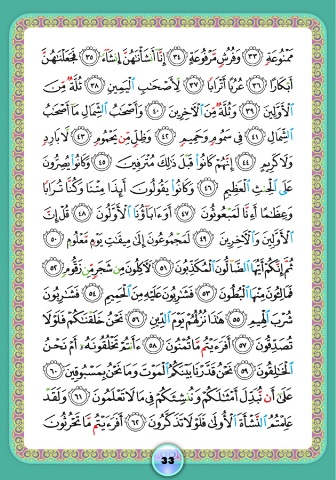 مَمْنُوعَةٍ ﴿٣٣﴾ وَفُرُشٍ مَّرْفُوعَةٍ ﴿٣٤﴾ إِنَّا أَنشَأْنَاهُنَّ إِنشَاءً ﴿٣٥﴾ فَجَعَلْنَاهُنَّ
أَبْكَارًا ﴿٣٦﴾ عُرُبًا أَتْرَابًا ﴿٣٧﴾ لِأَصْحَابِ الْيَمِينِ ﴿٣٨﴾ ثُلَّةٌ مِّنَ
الْأَوَّلِينَ ﴿٣٩﴾ وَثُلَّةٌ مِّنَ الْآخِرِينَ ﴿٤٠﴾ وَأَصْحَابُ الشِّمَالِ مَا أَصْحَابُ
الشِّمَالِ ﴿٤١﴾ فِي سَمُومٍ وَحَمِيمٍ ﴿٤٢﴾ وَظِلٍّ مِّن يَحْمُومٍ ﴿٤٣﴾ لَا بَارِدٍ
وَلَا كَرِيمٍ ﴿٤٤﴾ إِنَّهُمْ كَانُوا قَبْلَ ذَٰلِكَ مُتْرَفِينَ ﴿٤٥﴾ وَكَانُوا يُصِرُّونَ
عَلَى الْحِنثِ الْعَظِيمِ ﴿٤٦﴾ وَكَانُوا يَقُولُونَ أَئِذَا مِتْنَا وَكُنَّا تُرَابًا
وَعِظَامًا أَءِنَّا لَمَبْعُوثُونَ ﴿٤٧﴾ أَوَآبَاؤُنَا الْأَوَّلُونَ ﴿٤٨﴾ قُلْ إِنَّ
الْأَوَّلِينَ وَالْآخِرِينَ ﴿٤٩﴾ لَمَجْمُوعُونَ إِلَىٰ مِيقَاتِ يَوْمٍ مَّعْلُومٍ ﴿٥٠﴾
ثُمَّ إِنَّكُمْ أَيُّهَا الضَّالُّونَ الْمُكَذِّبُونَ ﴿٥١﴾ لَآكِلُونَ مِن شَجَرٍ مِّن زَقُّومٍ ﴿٥٢﴾
فَمَالِئُونَ مِنْهَا الْبُطُونَ ﴿٥٣﴾ فَشَارِبُونَ عَلَيْهِ مِنَ الْحَمِيمِ ﴿٥٤﴾ فَشَارِبُونَ
شُرْبَ الْهِيمِ ﴿٥٥﴾ هَٰذَا نُزُلُهُمْ يَوْمَ الدِّينِ ﴿٥٦﴾ نَحْنُ خَلَقْنَاكُمْ فَلَوْلَا
تُصَدِّقُونَ ﴿٥٧﴾ أَفَرَأَيْتُم مَّا تُمْنُونَ ﴿٥٨﴾ ءَأَنتُمْ تَخْلُقُونَهُ أَمْ نَحْنُ
الْخَالِقُونَ ﴿٥٩﴾ نَحْنُ قَدَّرْنَا بَيْنَكُمُ الْمَوْتَ وَمَا نَحْنُ بِمَسْبُوقِينَ ﴿٦٠﴾
عَلَىٰ أَن نُّبَدِّلَ أَمْثَالَكُمْ وَنُنشِئَكُمْ فِي مَا لَا تَعْلَمُونَ ﴿٦١﴾ وَلَقَدْ
عَلِمْتُمُ النَّشْأَةَ الْأُولَىٰ فَلَوْلَا تَذَكَّرُونَ ﴿٦٢﴾ أَفَرَأَيْتُم مَّا تَحْرُثُونَ
33